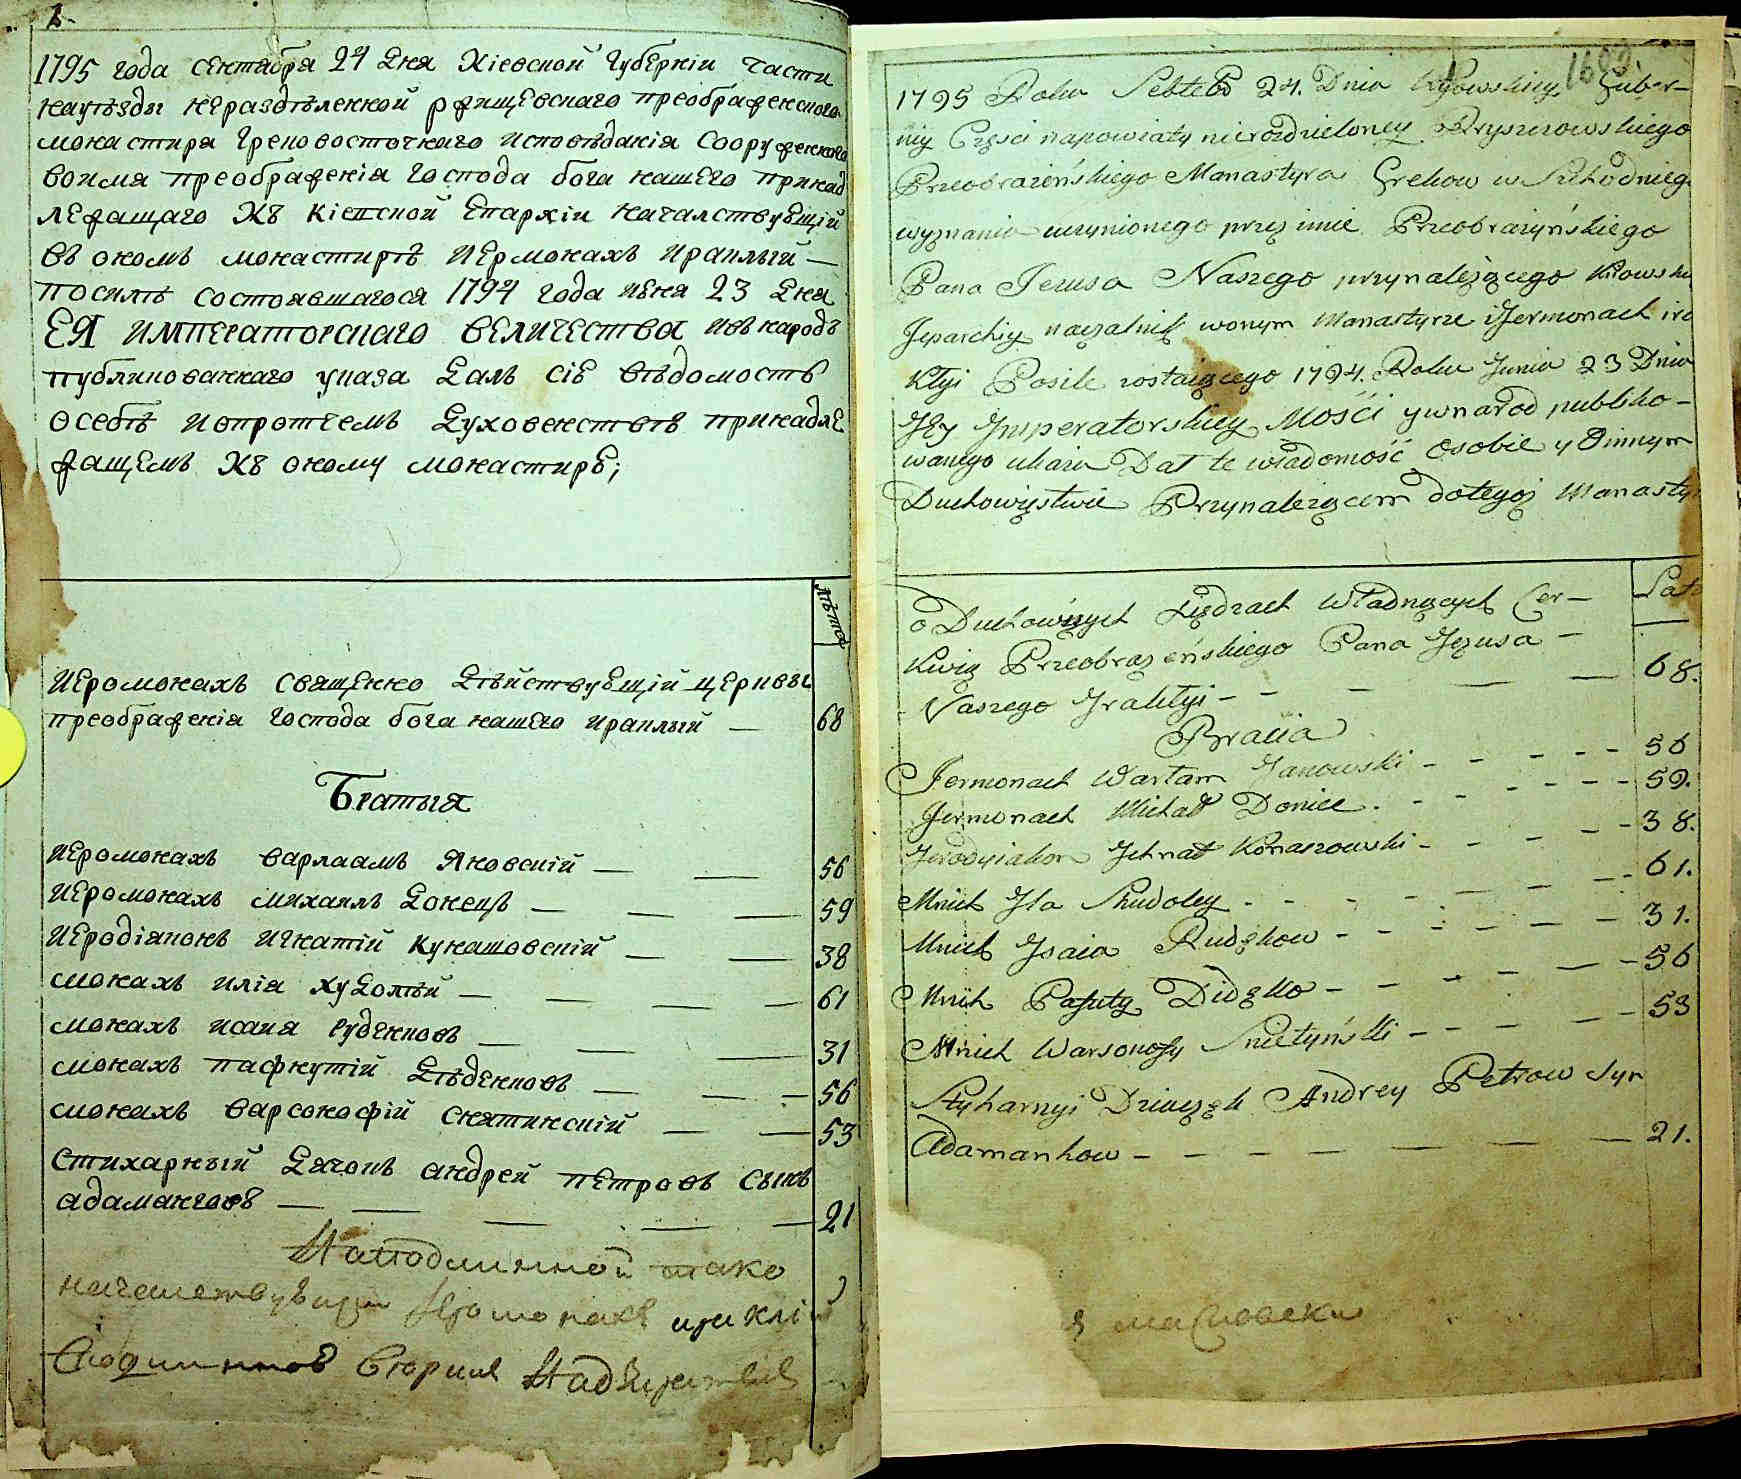 1795 года сентабра 24 дня Кіевской губерніи части
науѣзды нераздѣленной ржищевскаго преображенского
монастира Грековосточнаго исповѣданія сооруженнаго
воимя преображенія Господа бога нашего принад
лежащаго къ Кіевской Епархіи началствующій
въ ономъ монастирѣ Иермонахъ ираклый —
посилѣ состоявшагося 1794 года июня 23 дня
ЕЯ императорскаго величества изъ народъ
публикованнаго указа далъ сію вѣдомость
осебѣ ипротчемъ духовенствѣ принадле
жащемъ къ оному монастирю;
лѣта
Иеромонахъ священно дѣйствующій церквы
преображенія Господа бога нашего ираклый — 68
Братыя
Иеромонахъ варлаамъ Яновскій — — 56
Иеромонахъ михаилъ донецъ — — — 59
Иеродіаконъ игнатій кунашовскій — — 38
монахъ илія худолѣй — — — — 61
монахъ исаия руденковъ — — — 31
монахъ пафнутій дѣденковъ — — — 56
монахъ варсонофій снятинскій — — 53
стихарный дячокъ андрей петровъ сынъ
адаманговъ — — — — — 21
Наподлинной тако
Иеромонахъ ираклій
1692.
1795 Roku Sebtebr 24. Dnia Kijowskiey Guber-
nij Części napowiaty nierozdzieloney Rzyszczowskiego
Przeobrażeńskiego Manastyra Grekow w Schodnieg
wyznania uczynionego przez imie Przeobrażyńskiego
Pana Jezusa Naszego przynależącego Kiiowski
Jeparchiy naczalnik wonym Manastyrze iJermonach ira
Kłyi Posile zostaiącego 1794. Roku Junia 23 Dnia
Jey Jmperatorskiey Mości ywnarod publiko-
wanego ukazu Dał te wiadomość osobie y Dinnym
Duchowięstwie Przynależącem dotegoż Manasty
o Duchownych Xiędzach Władnących Cer- Lat
Kwią Przeobrażeńskiego Pana Jezusa -
Naszego Jraklyi - - — — 68.
Braсia
Jermonach Warłam Janowski - - - - - 56
Jermonach Michał Doniec. - - - - - 59.
Jerodyiakon Jchnat Konaszowski - - - - 38.
Mnich Jla Chudoley - - - - - - 61.
Mnich Jsaia Rudękow - - - - - - 31.
Mnich Pafnuty Didęko - - - - - 56
Mnich Warsonofy Snietyński - - - - 53
Styharnyi Dziaczek Andrey Petrow Syn
Adamankow - - - - — — — 21.